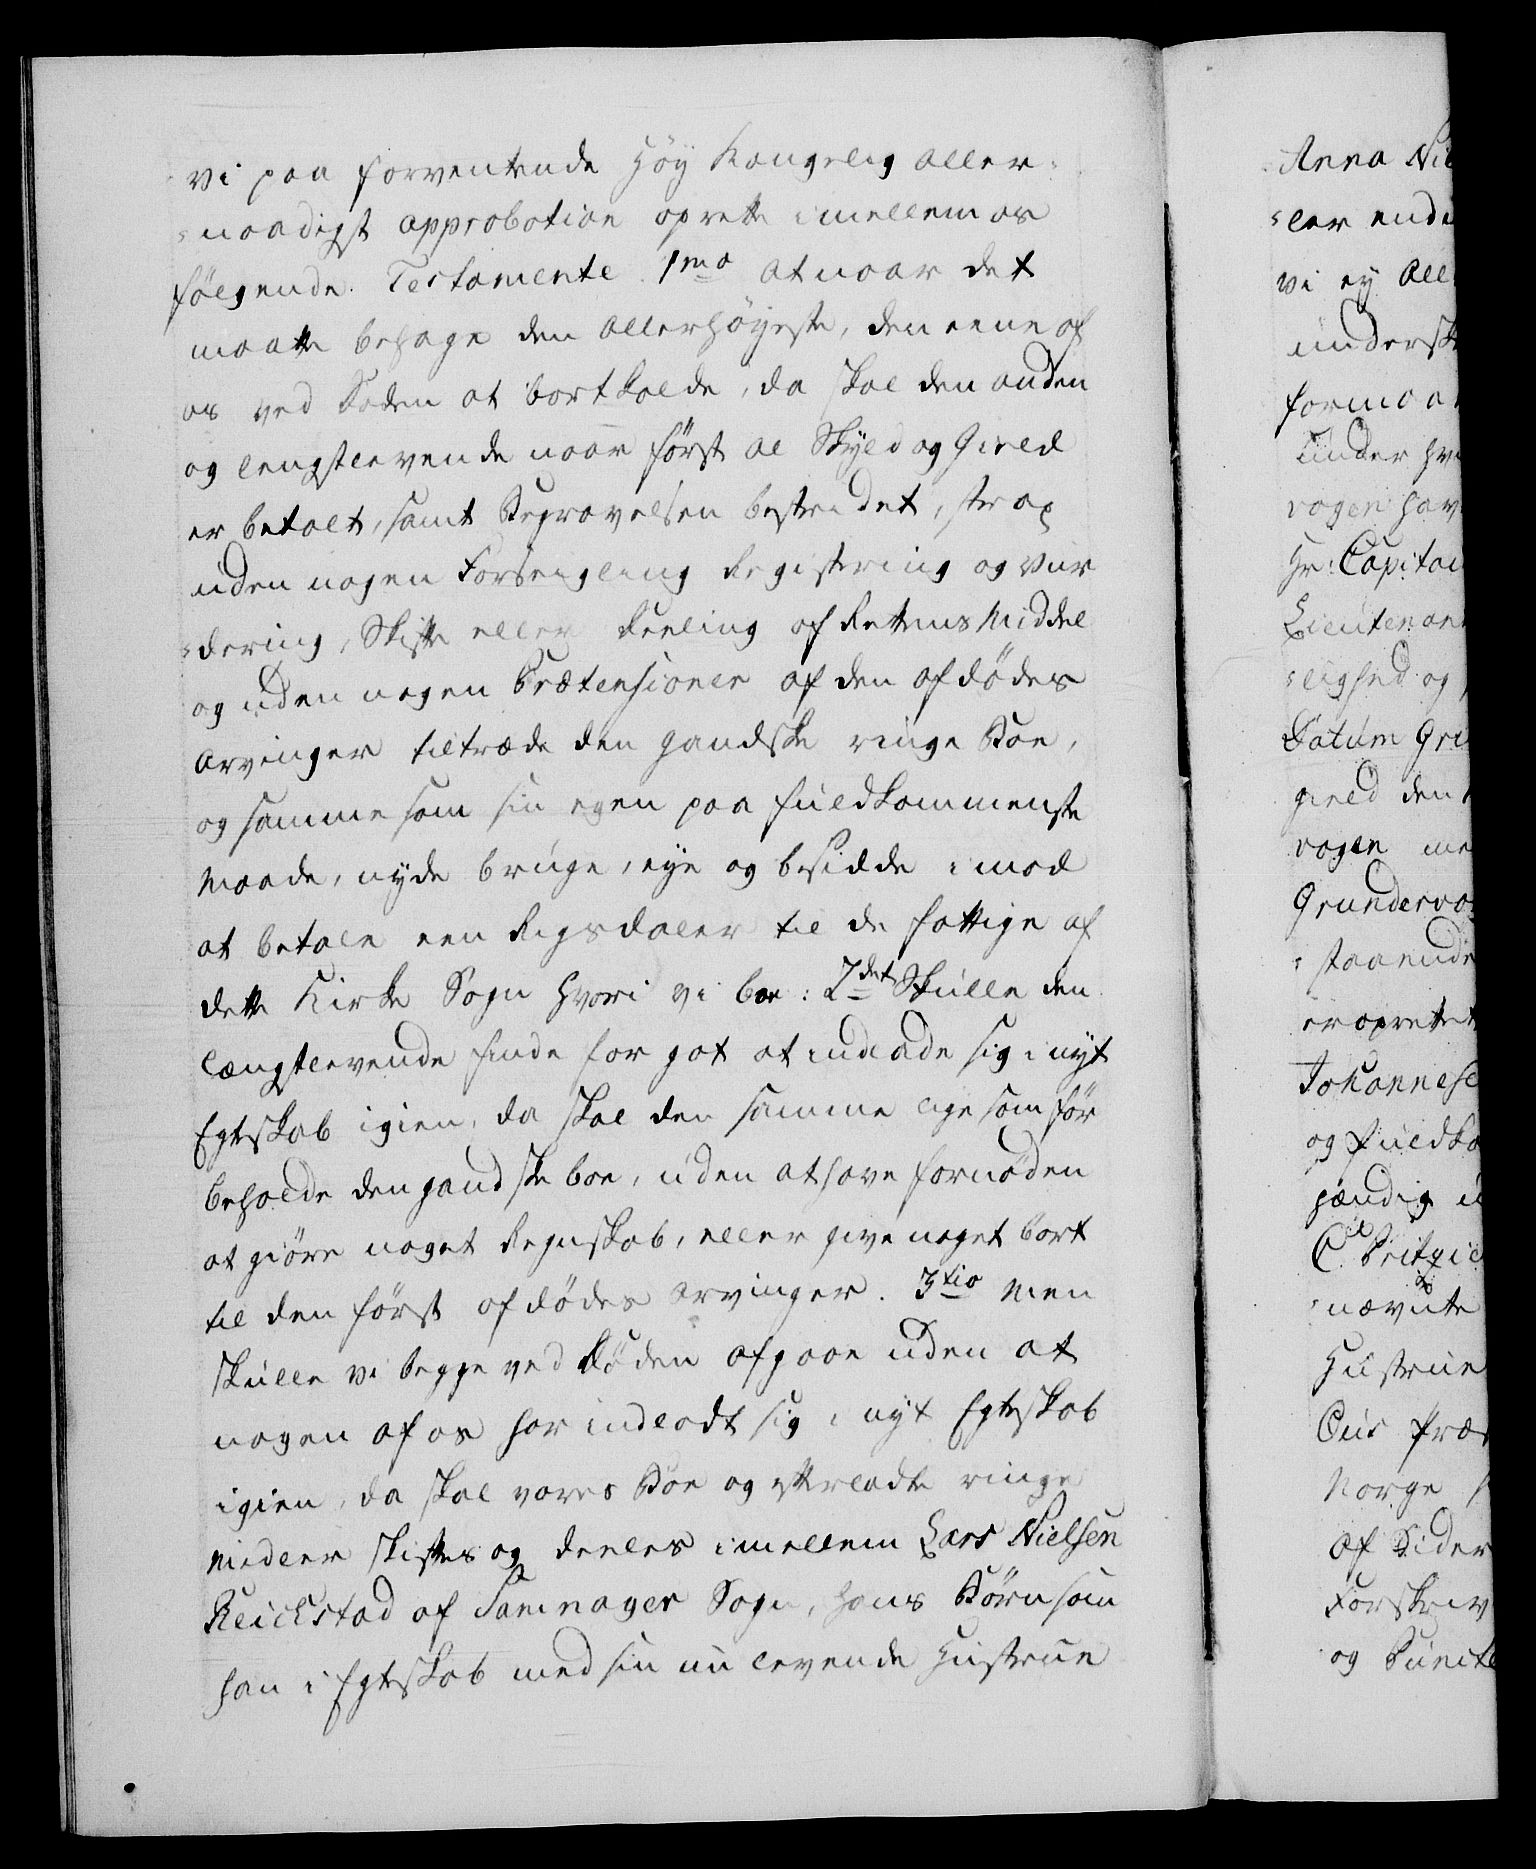 vi paa forventende Høy Kongelig Aller-
-naadigst approbation oprette imellem os
følgende Testamente 1mo at naar det
maatte behage den Allerhøyeste, den eene af
os ved Døden at bortkalde, da skal den anden
og lengstlevende naar først al Skyld og Gield
er betalt, samt Begravelsen bestridet, strax
uden nogen Forseigling Registering og Vur
-dering, Skifte eller Deeling af Rettens Middel
og uden nogen Prætensioner af den afdødes
Arvinger tiltræde den gandske ringe Boe,
og samme som sin egen paa fuldkommenste
Maade, nyde bruge, eye og besidde imod
at betale een Rigsdaler til de fattige af
dette Kirke Sogn hvori vi boe: 2det Skulle den
længstlevende finde for got at indlade sig i nyt
Egteskab igien, da skal den samme lige som før
beholde den gandske boe, uden at have fornøden
at giøre noget Regnskab, eller give noget bort
til den først afdødes Arvinger. 3tio Men
skulle vi begge ved Døden afgaae uden at
nogen af os har indladt sig i nyt Egteskab
igien, da skal vores Boe og efterladte ringe
Midler skiftes og deeles imellem Lars Nielsen
Reickstad af Samnager Sogn, hans Børn som
han i Egteskab med sin nu levende Hustrue
Anna Nie
-ler end
vi ey All
undersk
formaa
Under hv
vogen hav
Hr: Capitai
Lieutenan
-lighed og
Datum Gri
gield den
vogen me
Grundervo
-staaende
er oprettet
Johannese
og fuldko
hændig u
C
-nævnte
Hustrue
Ous Præs
Norge
Af
Forskriv
og